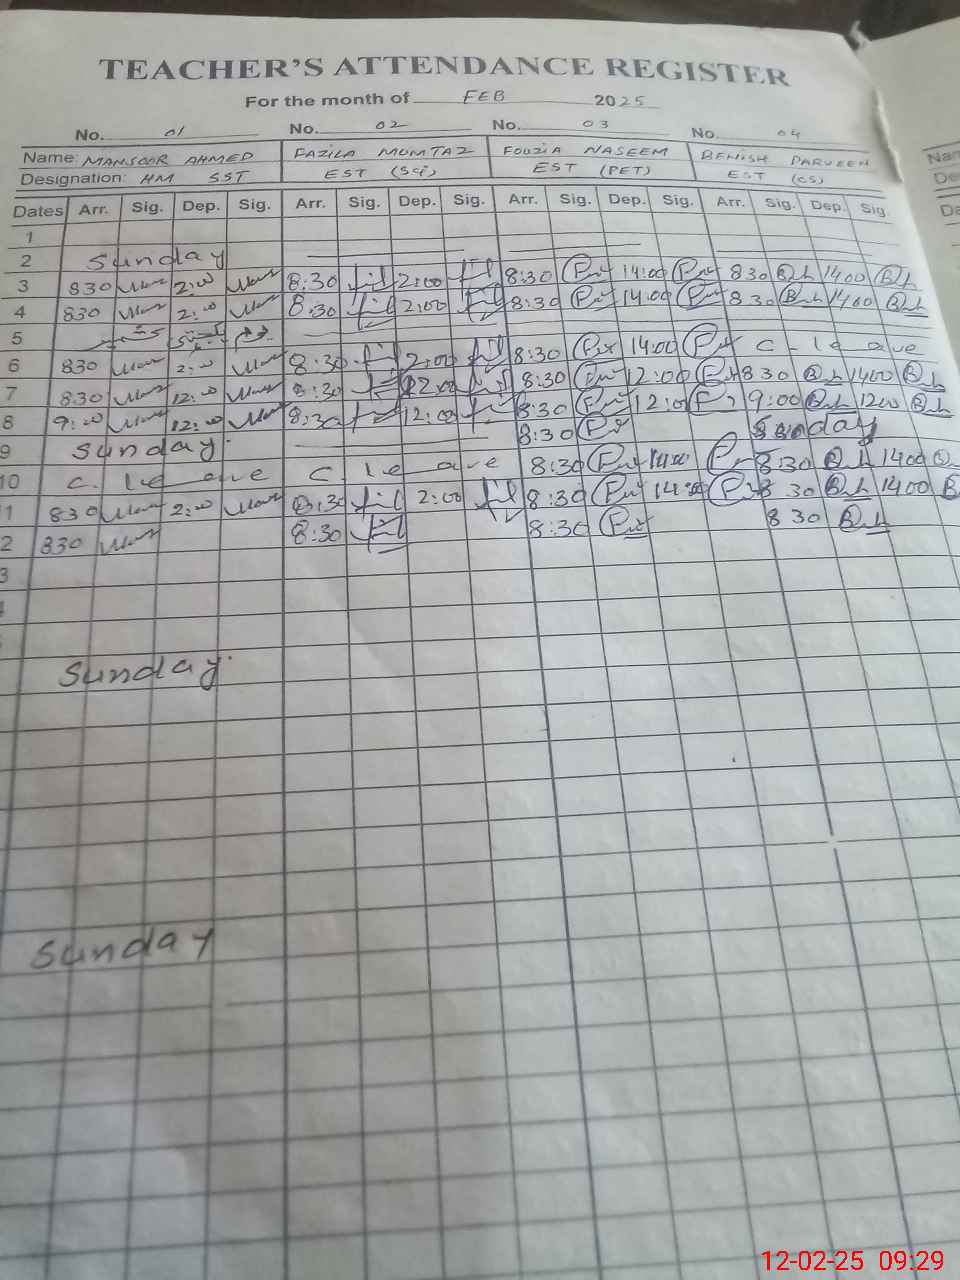 TEACHER'S ATTENDANCE REGISTER
For the month of FEB 2025
No. 01 No. 02 No. 03 No. 04
Name: MANSOOR AHMED FAZILA MUMTAZ FOUZIA NASEEM BENISH PARVEEN Nam
Designation: HM SST EST (Sci) EST (PET) EST (CS) De
Dates Arr. Sig. Dep. Sig. Arr. Sig. Dep. Sig. Arr. Sig. Dep. Sig. Arr. Sig. Dep. Sig. Da
1
2 Sunday
3 830 2:00 8:30 2:00 8:30 14:00 830 1400
4 830 2:00 8:30 2:00 8:30 14:00 830 1400
5 کشمیر
6 830 2:00 8:30 2:00 8:30 14:00 C-leave
7 830 12:00 8:30 12:00 8:30 12:00 830 1400
8 9:00 12:00 8:30 12:00 8:30 12:0 9:00 1200
9 Sunday 8:30 Sunday
10 C. leave C leave 8:30 14:00 8:30 1400
1 830 2:00 8:30 2:00 8:30 14:00 8 30 1400
2 830 8:30 8:30 8 30
3
Sunday
Sunday
12-02-25 09:29